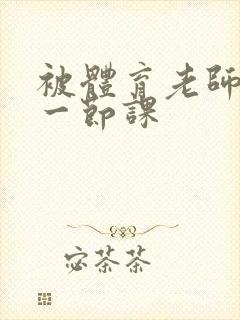 被體育老師
一節課
宓茶茶